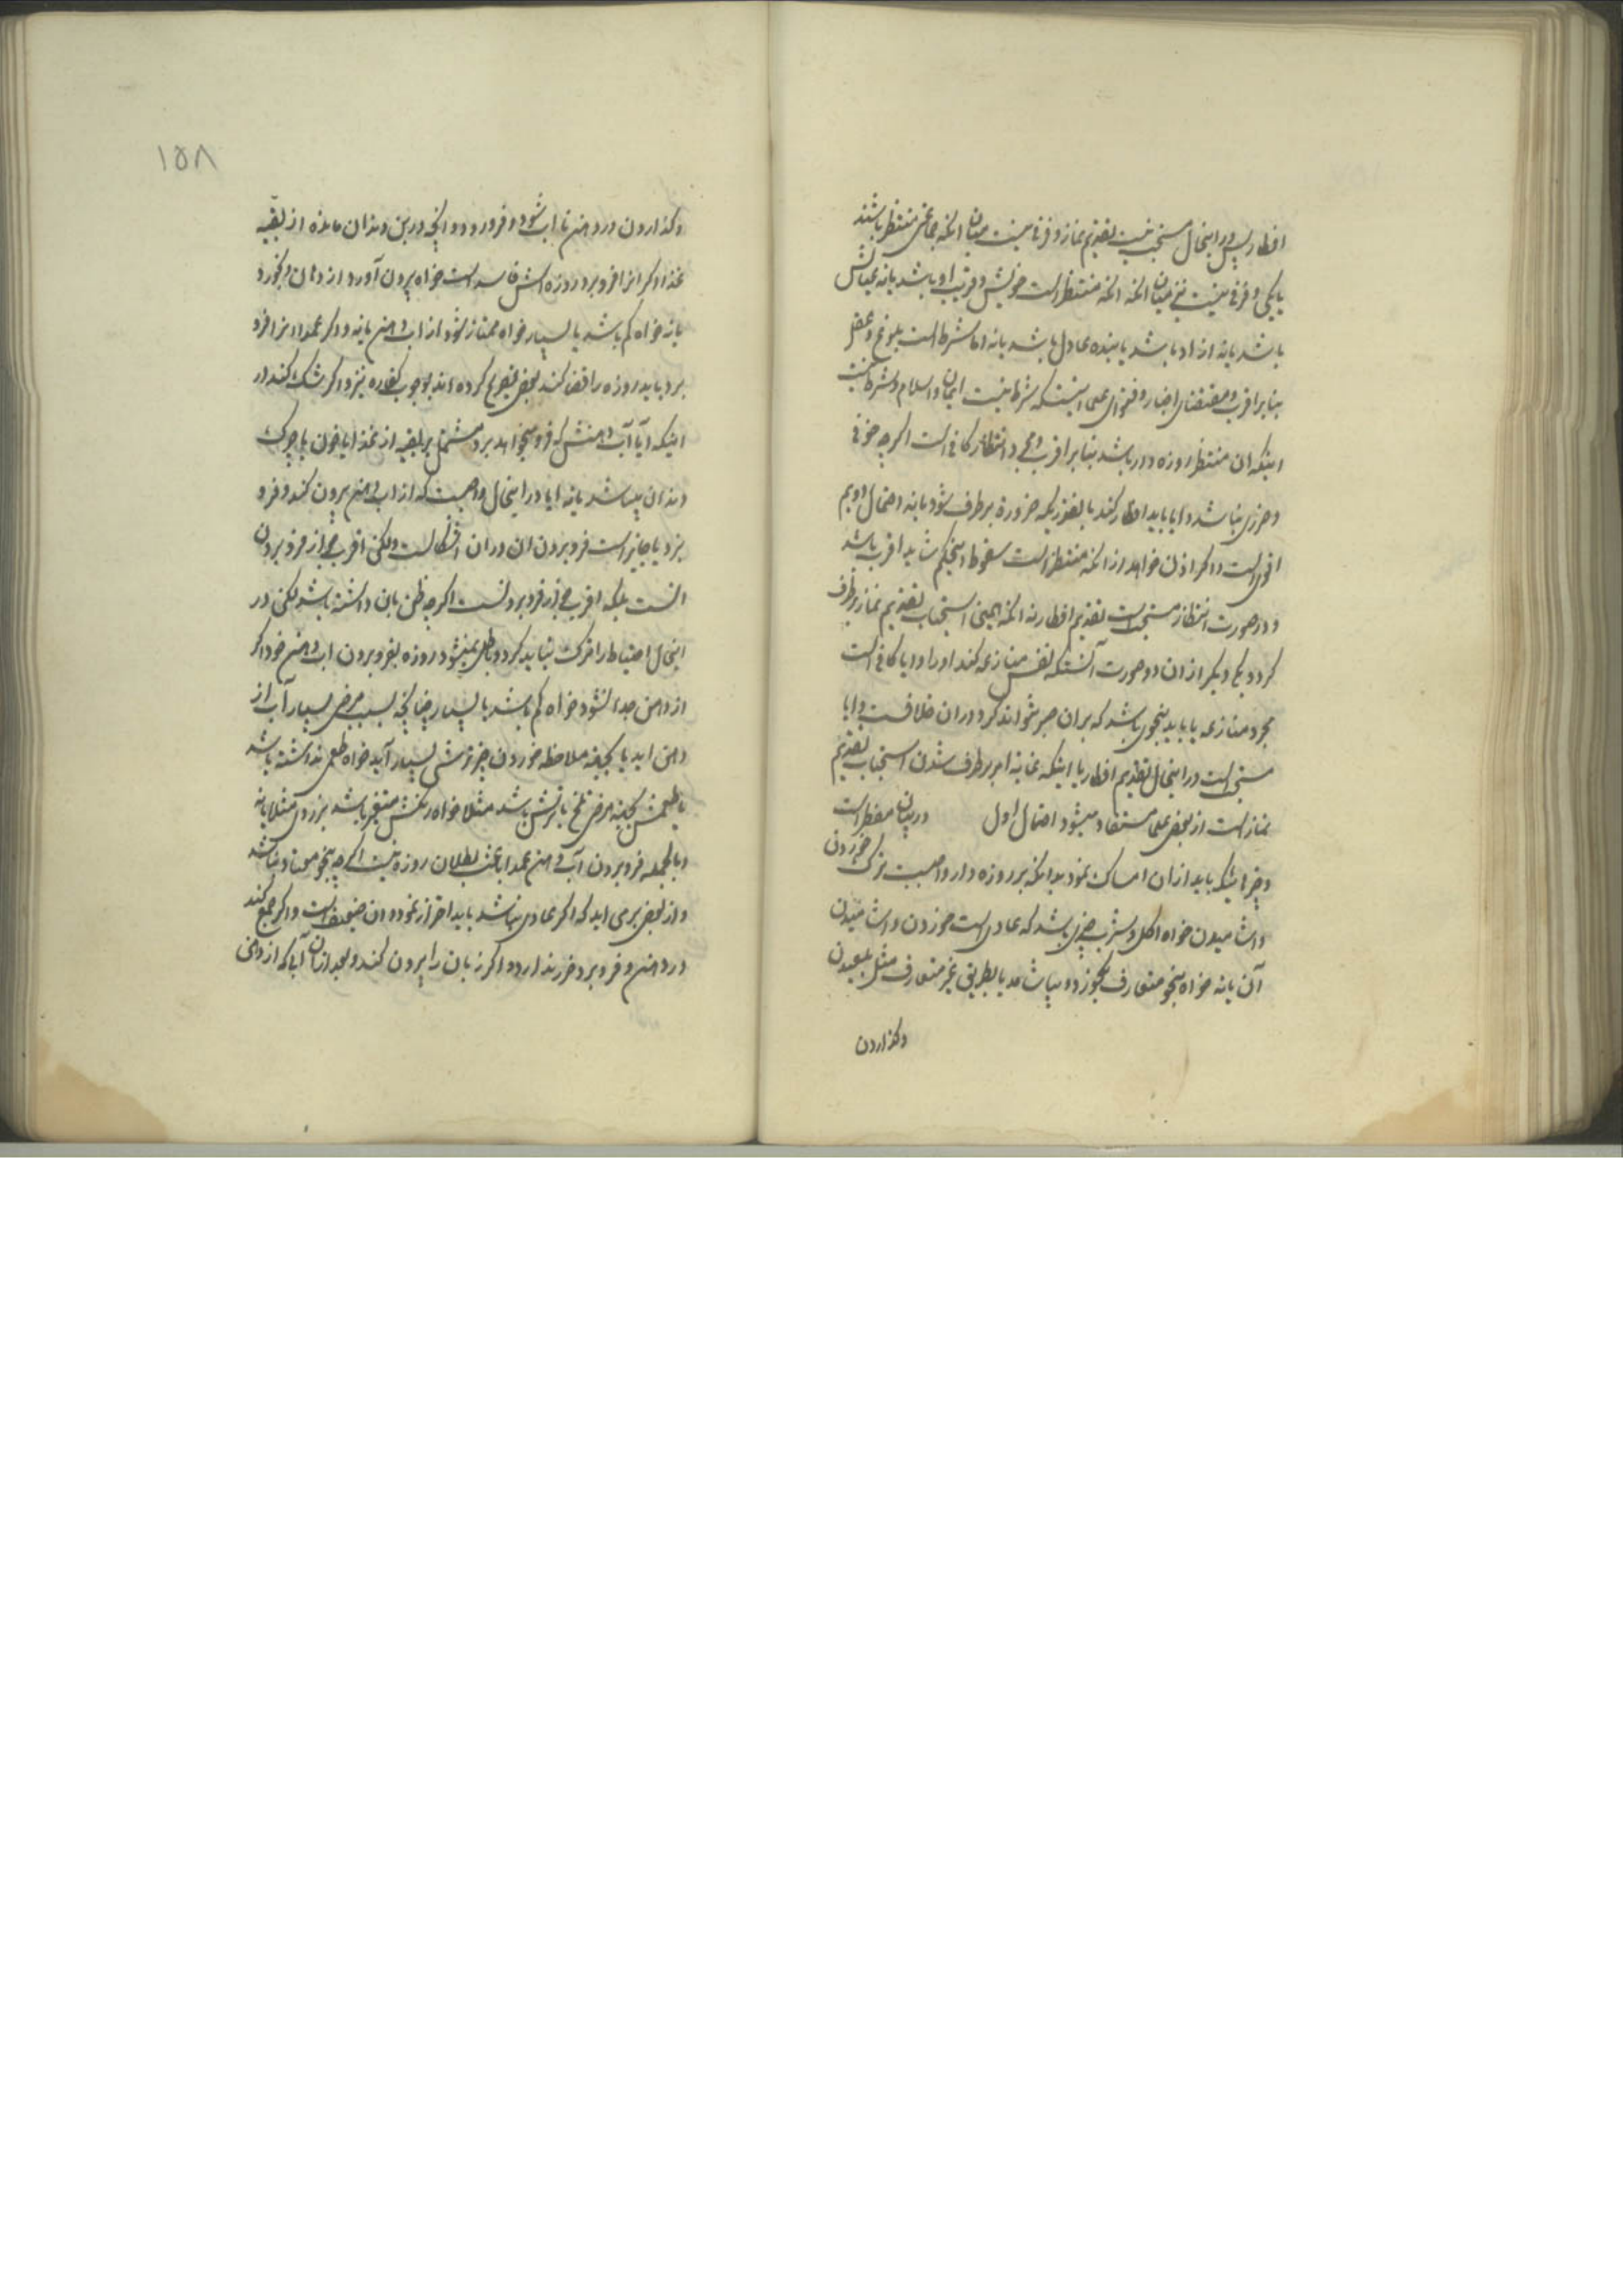 افطار پس در اینحال مستحب نیست تقدیم نماز و فرق نیست میان آنکه جماعتی منتظر باشند
یا یکی و فرقی نیست نیز میان آنکه آنکه منتظر است خویش و قریب او باشد یا نه عیالش
باشد یا نه ازاد باشد یا بنده عادل باشد یا نه اما شرط است بلوغ و عقل
بنابر اقرب و مقتضای اخبار و فتوای علما اینست که شرط نیست ایمان و اسلام و شرط نیست
اینکه ان منتظر روزه دار باشد بنابر اقرب و مجرد انتظار کافی است اگرچه خوفی
و ضرری نباشد و ایا باید افطار کند بقدریکه ضرورة برطرف شود یا نه احتمال دویم
اقوی است و اگر اذن خواهد از آنکه منتظر است سقوط اینحکم شاید اقرب باشد
و در صورت انتظار مستحب است تقدیم افطار نه آنکه همینی استحباب تقدیم نماز برطرف
گردد یکی دیگر از ان دو صورت آنستکه نفس منازعه کند او را و ایا کافی است
مجرد منازعه یا باید بنحوی باشد که بران صبر نتواند کرد دران خلافست و ایا
مستحب است در اینحال تقدیم افطار یا اینکه غایة امر برطرف شدن استحباب تقدیم
نماز است از بعض علما مستفاد میشود احتمال اول در بیان مفطر است
و چیزاینکه باید از ان امساک نمود بدانکه بر روزه دار واجبست ترک خوردن
و اشامیدن خواه اکل و شرب چیزی باشد که عادی است خوردن و اشامیدن
آن یا نه خواه بنحو متعارف بخورد و بیاشامد یا بطریق غیر متعارف مثل بلعیدن
و گذاردن
۱۵۸
و گذاردن در دهن تا اب شود و فرو رود و آنچه در بن دندان مانده از بقیه
غذا و اگر انرا فرو برد روزه اش فاسد است خواه بیرون آورد از دهان و بخورد
یا نه خواه کم باشد یا بسیار خواه ممتاز شود از اب دهن یا نه و اگر عمدا انرا فرو
برد باید روزه را قضا کند بعض تصریح کرده اند بوجوب کفاره نیز و اگر شک کند در
اینکه آیا آب دهنش که فرو میخواهد برد مشتمل بر بقیه از غذا یا خون یا چرک
دندان میباشد یا نه ایا در اینحال واجبست که از اب دهن بیرون کند و فرو
نبرد یا جایز است فرو بردن ان دران اشکالست ولکن اقرب جواز فرو بردن
انست بلکه اقرب جواز فرو بردنست اگرچه ظن بان داشته باشد لکن در
اینحال احتیاط را ترک نباید کرد و باطل نمیشود روزه بفرو بردن اب دهن خود اگر
از دهن جدا نشود خواه کم باشد یا بسیار چنانچه بسبب مرض بسیار آب از
دهن اید یا بجهة ملاحظه خوردن چیز ترشی بسیار آید خواه طعمی نداشته باشد
یا طعمش بجهة مرض تلخ یا ترش باشد مثلا خواه رنگش متغیر باشد بزردی مثلا یا نه
و بالجمله فرو بردن آب دهن عمدا باعث بطلان روزه نیست اگرچه بنحو معتاد نباشد
و از بعض برمی اید که اگر عادی نباشد باید احتراز نمود و ان ضعیف است و اگر جمع کند
در دهن و فرو برد ضرر ندارد و اگر زبان را بیرون کند و بعد از ان آبا که از دهن